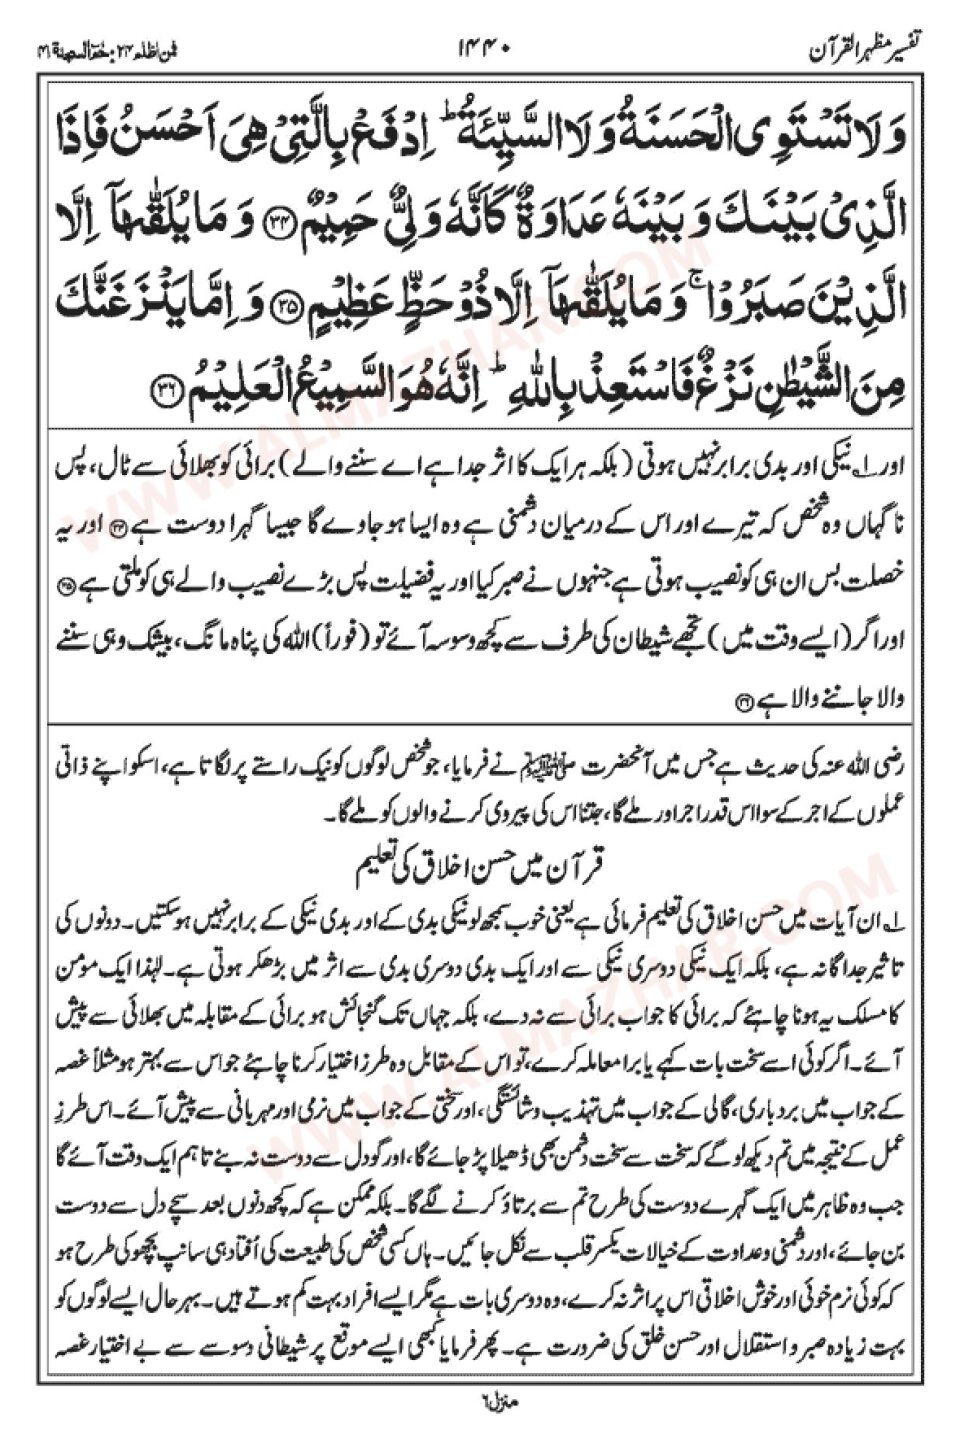 تفسیر مظہر القرآن
۱۴۴۰
فمن اظلم ۲۴ : حٰمٓ السجدۃ ۴۱
وَلَا تَسْتَوِی الْحَسَنَةُ وَلَا السَّيِّئَةُ ؕ اِدْفَعْ بِالَّتِیْ هِیَ اَحْسَنُ فَاِذَا
الَّذِیْ بَيْنَكَ وَبَيْنَهٗ عَدَاوَةٌ كَاَنَّهٗ وَلِیٌّ حَمِيْمٌ ۝۳۴ وَمَا يُلَقّٰىهَاۤ اِلَّا
الَّذِيْنَ صَبَرُوْا ۚ وَمَا يُلَقّٰىهَاۤ اِلَّا ذُوْ حَظٍّ عَظِيْمٍ ۝۳۵ وَاِمَّا يَنْزَغَنَّكَ
مِنَ الشَّيْطٰنِ نَزْغٌ فَاسْتَعِذْ بِاللّٰهِ ؕ اِنَّهٗ هُوَ السَّمِيْعُ الْعَلِيْمُ ۝۳۶
اور ۱؎ نیکی اور بدی برابر نہیں ہوتی (بلکہ ہر ایک کا اثر جدا ہے اے سننے والے) برائی کو بھلائی سے ٹال، پس
ناگہاں وہ شخص کہ تیرے اور اس کے درمیان دشمنی ہے وہ ایسا ہو جاوے گا جیسا گہرا دوست ہے ۝۳۴ اور یہ
خصلت بس ان ہی کو نصیب ہوتی ہے جنہوں نے صبر کیا اور یہ فضیلت پس بڑے نصیب والے ہی کو ملتی ہے ۝۳۵
اور اگر (ایسے وقت میں) تجھے شیطان کی طرف سے کچھ وسوسہ آئے تو (فوراً) اللہ کی پناہ مانگ، بیشک وہی سننے
والا جاننے والا ہے ۝۳۶
رضی اللہ عنہ کی حدیث ہے جس میں آنحضرت ﷺ نے فرمایا، جو شخص لوگوں کو نیک راستے پر لگاتا ہے، اسکو اپنے ذاتی
عملوں کے اجر کے سوا اس قدر اجر اور ملے گا، جتنا اس کی پیروی کرنے والوں کو ملے گا۔
قرآن میں حسن اخلاق کی تعلیم
۱؎ ان آیات میں حسن اخلاق کی تعلیم فرمائی ہے یعنی خوب سمجھ لو نیکی بدی کے اور بدی نیکی کے برابر نہیں ہو سکتیں۔ دونوں کی
تاثیر جداگانہ ہے، بلکہ ایک نیکی دوسری نیکی سے اور ایک بدی دوسری بدی سے اثر میں بڑھ کر ہوتی ہے۔ لہٰذا ایک مومن
کا مسلک یہ ہونا چاہئے کہ برائی کا جواب برائی سے نہ دے، بلکہ جہاں تک گنجائش ہو برائی کے مقابلہ میں بھلائی سے پیش
آئے۔ اگر کوئی اسے سخت بات کہے یا برا معاملہ کرے، تو اس کے مقابل وہ طرز اختیار کرنا چاہئے جو اس سے بہتر ہو مثلاً غصہ
کے جواب میں بردباری، گالی کے جواب میں تہذیب و شائستگی، اور سختی کے جواب میں نرمی اور مہربانی سے پیش آئے۔ اس طرزِ
عمل کے نتیجہ میں تم دیکھ لو گے کہ سخت سے سخت دشمن بھی ڈھیلا پڑ جائے گا، اور گو دل سے دوست نہ بنے تاہم ایک وقت آئے گا
جب وہ ظاہر میں ایک گہرے دوست کی طرح تم سے برتاؤ کرنے لگے گا۔ بلکہ ممکن ہے کہ کچھ دنوں بعد سچے دل سے دوست
بن جائے، اور دشمنی و عداوت کے خیالات یکسر قلب سے نکل جائیں۔ ہاں کسی شخص کی طبیعت کی اُفتاد ہی سانپ بچھو کی طرح ہو
کہ کوئی نرم خوئی اور خوش اخلاقی اس پر اثر نہ کرے، وہ دوسری بات ہے مگر ایسے افراد بہت کم ہوتے ہیں۔ بہر حال ایسے لوگوں کو
بہت زیادہ صبر و استقلال اور حسن خلق کی ضرورت ہے۔ پھر فرمایا کبھی ایسے موقع پر شیطانی وسوسے سے بے اختیار غصہ
منزل ۶
WWW.ALMAZHAR.COM
WWW.ALMAZHAR.COM